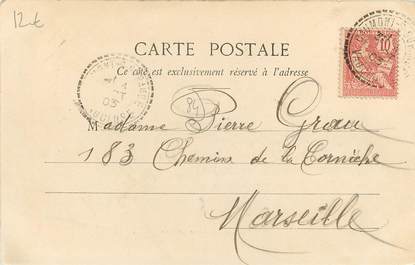 12 €
CARTE POSTALE
Ce côté est exclusivement réservé à l'adresse
10
03
84
Madame Pierre Grau
183 Chemin de la Corniche
Marseille